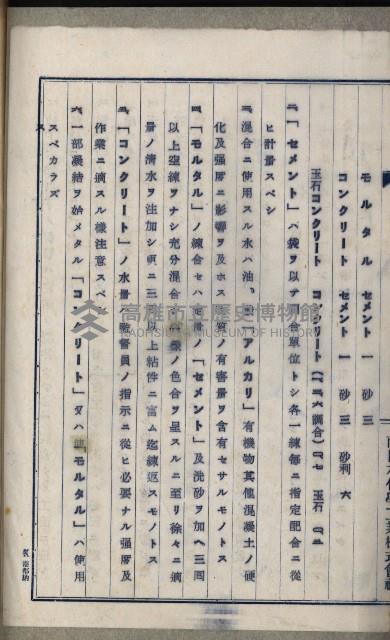 モルタル　セメント　一　砂　三
コンクリート　セメント　一　砂　三　砂利　六
玉石コンクリート　コンクリート　玉石
「セメント」ハ袋ヲ以テ　合單位トシ各一練每ニ指定配合ニ從
ヒ計量スベシ
混合ニ使用スル水ハ油、「アルカリ」有機物其他混凝土ノ硬
化及强度ニ影響ヲ及ホス　有害量ヲ含有セサルモノトス
「モルタル」ノ練合セハ　量ノ「セメント」及洗砂ヲ加ヘ三回
以上空練ヲナシ充分混合　ノ色合ヲ呈スルニ至リ徐々ニ適
量ノ淸水ヲ注加シ更ニ三　以上粘性ニ富ム迄練返スモノトス
「コンクリート」ノ水量ハ監督員ノ指示ニ從ヒ必要ナル强度及
作業ニ適スル樣注意スベシ
六、一部凝結ヲ始メタル「コンクリート」又ハ「モルタル」ハ使用
スベカラズ
高雄市立歷史博物館
KAOHSIUNG MUSEUM OF HISTORY